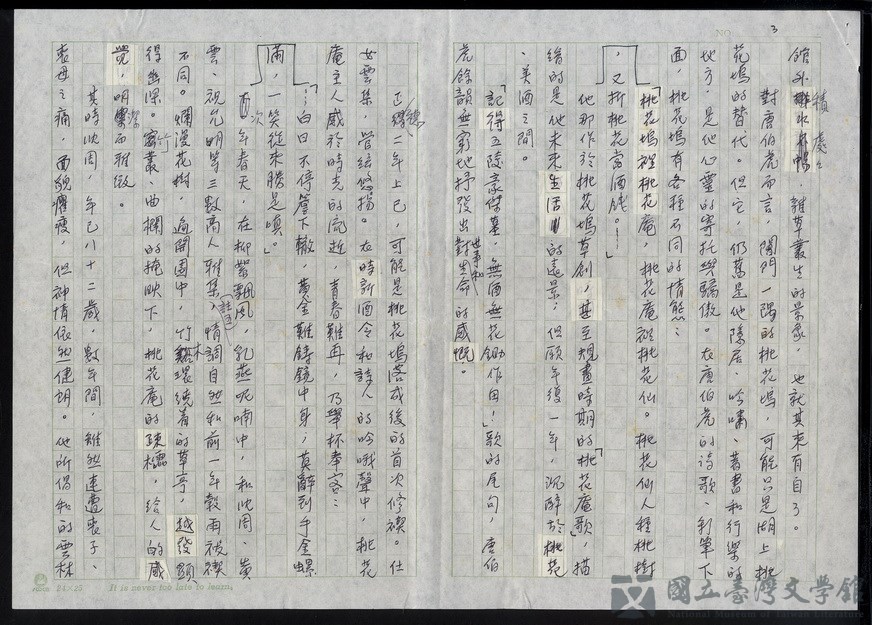 3
館外積水處處,雜草叢生的景象,也就其來有自了。
對唐伯虎而言,閶門一隅的桃花塢,可能只是湖上桃
花塢的替代。但它,仍舊是他隱居、吟嘯、著書和行樂的
地方,是他心靈的寄托與驕傲。在唐伯虎的詩歌、彩筆下
面,桃花塢有各種不同的情態:
「桃花塢裡桃花庵,桃花庵裡桃花仙。桃花仙人種桃樹
,又折桃花當酒錢。……」
他那作於桃花塢草創,甚至規畫時期的「桃花庵歌」,描
繪的是他未來生活的遠景,但願年復一年,沉醉於桃花
、美酒之間。
「記得五陵豪傑墓,無酒無花鋤作田!」歌的尾句,唐伯
虎餘韻無窮地抒發出對世事和生命的感慨。
正德二年上巳,可能是桃花塢落成後的首次修禊。仕
女雲集,管絃悠揚。在時新酒令和詩人的吟哦聲中,桃花
庵主人感於時光的流逝,青春難再,乃舉杯奉客:
「…白日不停簷下轍,黃金難鑄鏡中身,莫辭到手金螺
滿,一笑從來勝是嗔。」
次年春天,在柳絮飄風,乳燕呢喃中,和沈周、黃
雲、祝允明等三數高人雅集(註二),情調自然和前一年穀雨祓禊
不同。爛漫花樹,遍開園中,竹木環繞着的草亭,越發顯
得幽深。竹叢、曲欄的掩映下,桃花庵的疎櫺,給人的感
覺,明潔而雅緻。
其時沈周,年已八十二歲,數年間,雖然連遭喪子、
喪母之痛,面貌癯瘦,但神情依然健朗。他所偈和的雲林
24×25 It is never too late to learn.
國立臺灣文學館
National Museum of Taiwan Literature